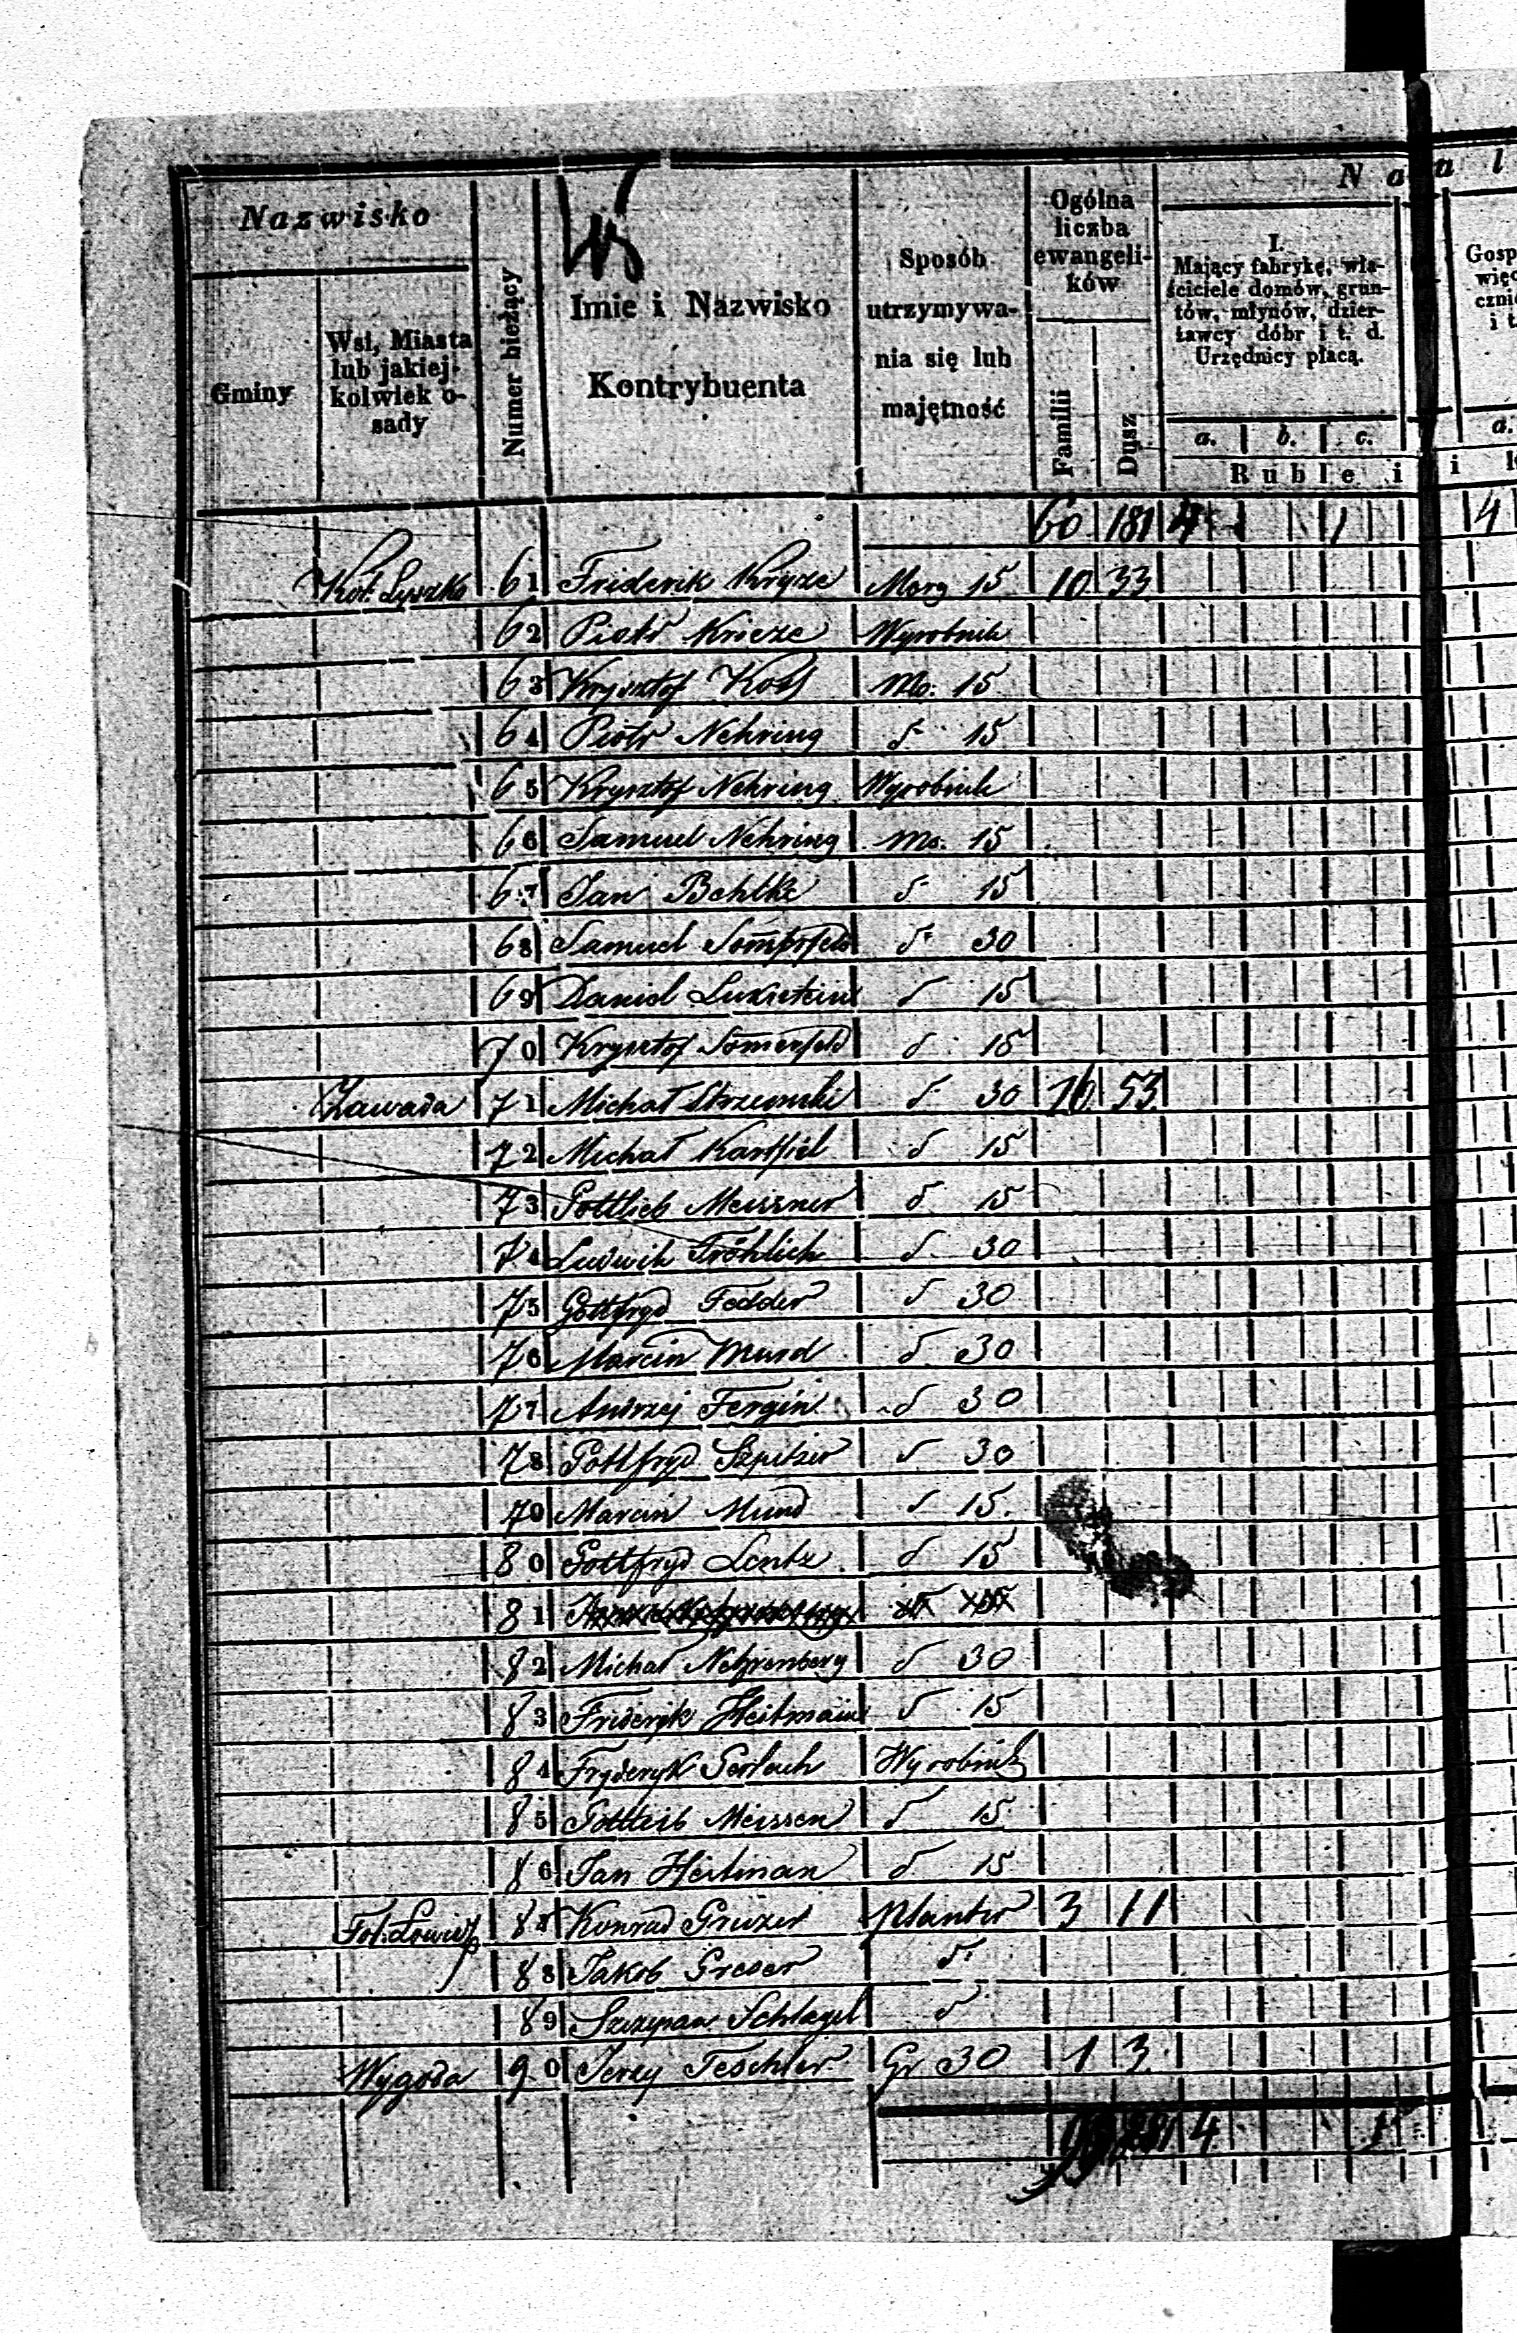 N a l
Nazwisko
Gminy
Wsi, Miasta
lub jakiej-
kolwiek o-
sady
Numer bieżący
Imie i Nazwisko
Kontrybuenta
Sposób
utrzymywa-
nia się lub
majętność
Ogólna
liczba
ewangeli-
ków
Familii
Dusz
I.
Mający fabrykę, wła-
ściciele domów, grun-
tów, młynów, dzier-
ławcy dóbr i t. d.
Urzędnicy płacą.
a. b. c.
Ruble i
60 181 4 1 4
61 Friderik Kryze Morg 15 10 33
62 Piotr Krieze Wyrobnik
63 Krysztof Mo. 15
64 Piotr Nehring d 15
65 Krysztof Nehring Wyrobnik
66 Samuel Nehring Mo. 15
67 Jan Behlke d 15
68 Samuel d 30
69 Daniel d 15
70 Krysztof d 15
Zawada 71 Michał d 30 16 53
72 Michał d 15
73 Gottlieb Meissner d 15
74 Ludwik Fröhlich d 30
75 Gottfryd Fedder d 30
76 Marcin Mund d 30
77 Andrzej Fergin d 30
78 Gottfryd Szpitzer d 30
79 Marcin Mund d 15.
80 Gottfryd Lentz d 15
81
82 Michał Nehrenberg d 30
83 Friderik Heitman d 15
84 Fryderyk Gerlach Wyrobnik
85 Gottlieb Meissen d 15
86 Jan Heitman d 15
87 Konrad planter 3 11
88 Jakob Greser d
89 Szczepan Schlagel d
Wygoda 90 Jerzy Teschler Gr 30 1 3
281 4 1